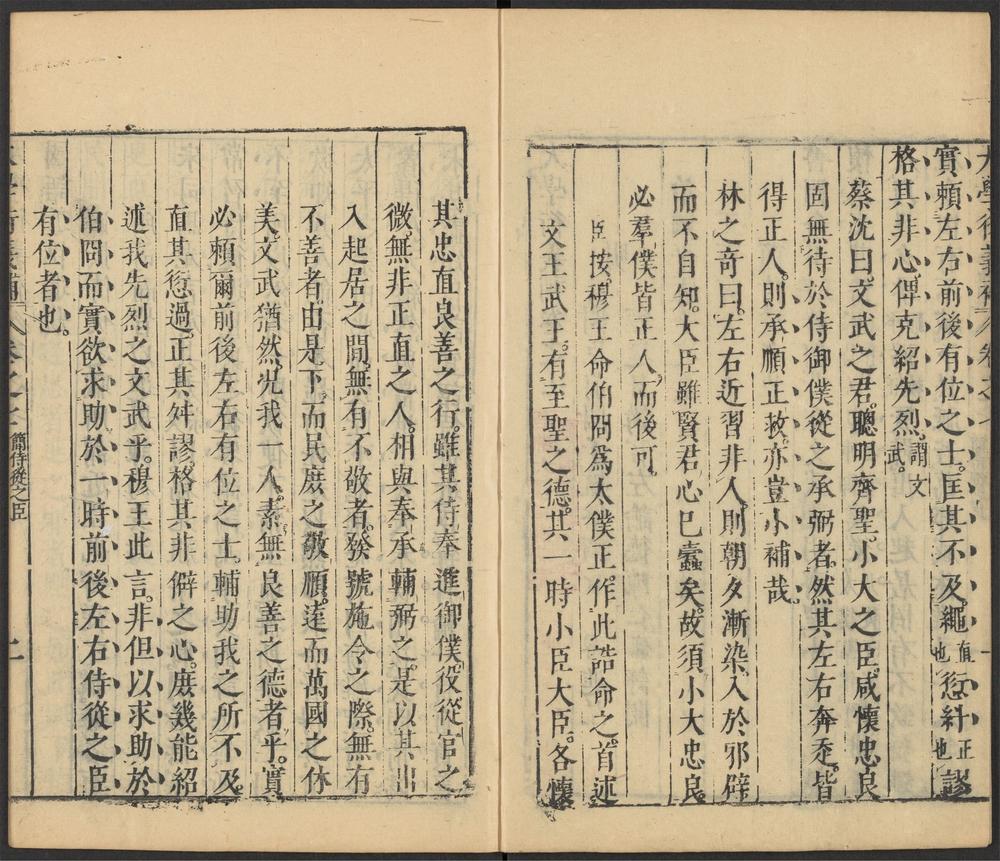 大學衍義補 卷之七
實賴左右前後有位之士匡其不及繩直也愆糾正也謬
格其非心俾克紹先烈謂文武。
蔡沈曰文武之君聰明齊聖小大之臣咸懷忠良
固無待於侍御僕從之承弼者然其左右奔走皆
得正人則承順正救亦豈小補哉
林之奇曰左右近習非人則朝夕漸染入於邪辟
而不自知大臣雖賢君心已蠹矣故須小大忠良
必羣僕皆正人而後可
臣按穆王命伯冏爲太僕正作此誥命之首述
文王武王有至聖之德其一時小臣大臣各懷
其忠直良善之行雖其侍奉進御僕役從官之
微無非正直之人相與奉承輔弼之是以其出
入起居之間無有不敬者發號施令之際無有
不善者由是下而民庶之敬順達而萬國之休
美文武猶然况我一人素無良善之德者乎實
必賴爾前後左右有位之士輔助我之所不及
直其愆過正其舛謬格其非僻之心庶幾能紹
述我先烈之文武乎穆王此言非但以求助於
伯冏而實欲求助於一時前後左右侍從之臣
有位者也
卷之七 簡侍從之臣